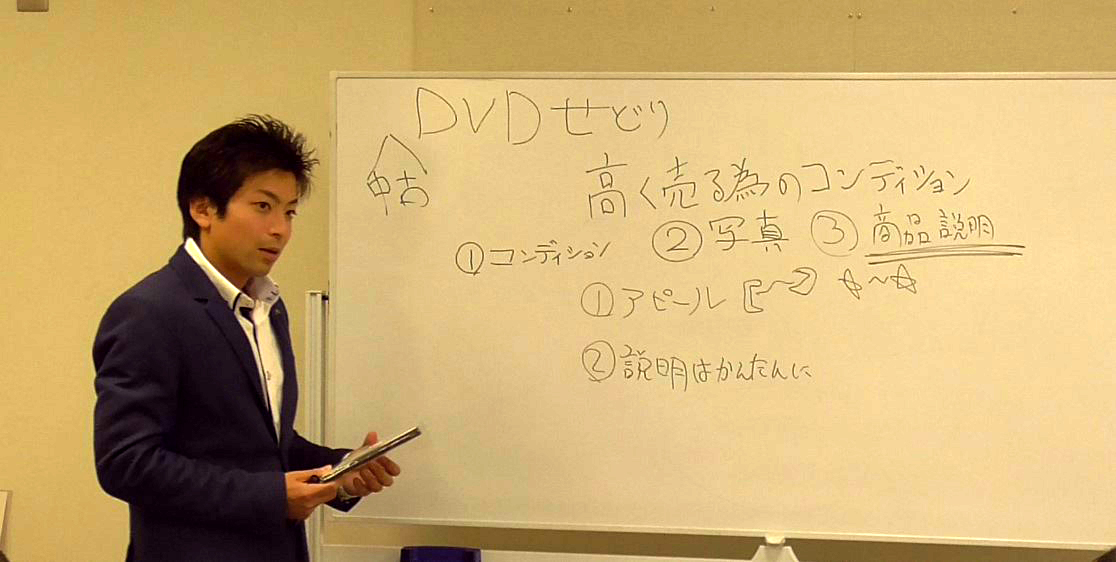 DVDせどり
中古
高く売る為のコンディション
①コンディション ②写真 ③商品説明
①アピール 【〜】 ☆〜☆
②説明はかんたんに